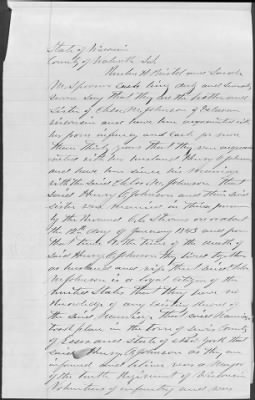 State of Wisconsin
County of Walworth SS.
Reuben H Bristol and Sarah
M Spooner each being duly and severally
sworn say that they are the brother and
sister of Chloe M Johnson of Delavan
Wisconsin and have been acquainted with
her from infancy and each for more
than thirty years that they were acquainted
with her husband Henry O Johnson
and have been since his marriage
with the said Chloe M Johnson. that
said Henry O Johnson and their said
sister were married in their presence
by the Reverend
the 12th day of January 1843 and from
that time to the time of the death of
said Henry O Johnson they lived together
as husband and wife that said Chloe
M Johnson is a loyal citizen of the
United States that they have no
knowledge of any record
of the said marriage, that said marriage
took place in the town of Lewis County
of Essex and State of New York that
said Henry O Johnson as they are
informed and believe was a Major
of the Tenth Regiment of Wisconsin
Volunteers of infantry and was